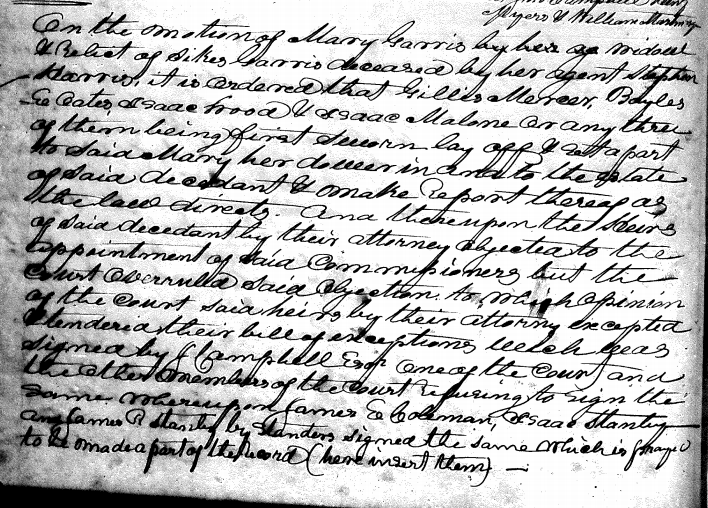 Myers & William
On the motion of Mary Garris by her widow
& Relict of Sikes Garris deceased by her agent Stephen
Harris, it is ordered that Gillis Mercer, Bayles
E Cates, Isaac Frood & Isaac Malone or any three
of them being first sworn lay off & set apart
to said Mary her dower in and to the estate
of said decedant & make Report thereof as
the law directs. And thereupon the Heirs
of said decedant by their attorney objected to the
appointment of said Commissioners but the
Court overruld said objection. to which opinion
of the Court said heirs by their attorney excepted
& tenderid their bill of exceptions which was
signed by J Campbell Esqr one of the Court and
the other members of the Court refusing to sign the
same whereupon James E Coleman, Isaac Stanley
and James R Stanley by standers signed the same which is
to be made a part of the record (here insert them) —